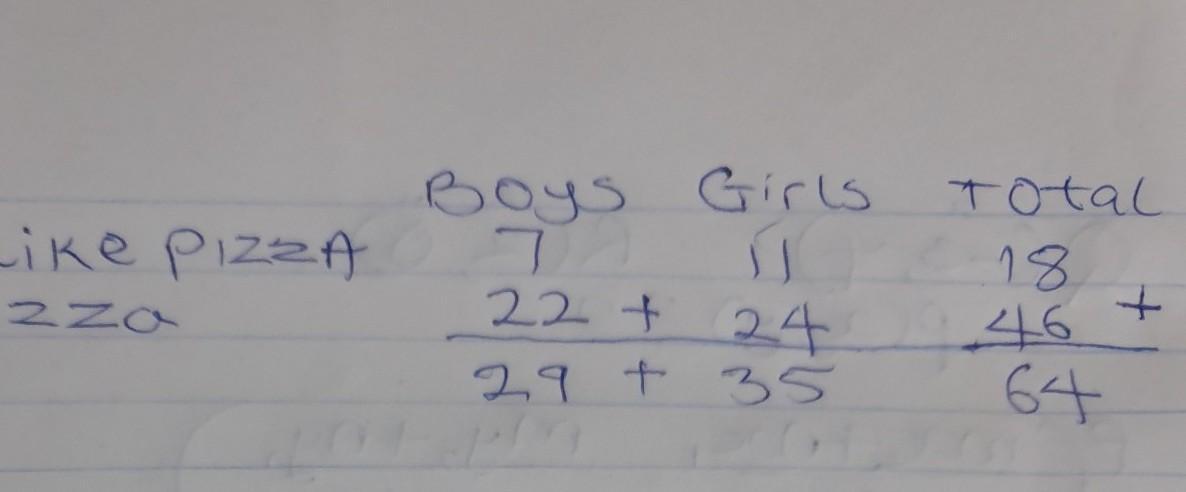 Boys Girls Total
ike PIZZA 7 11 18
zza 22 + 24 46 +
29 + 35 64